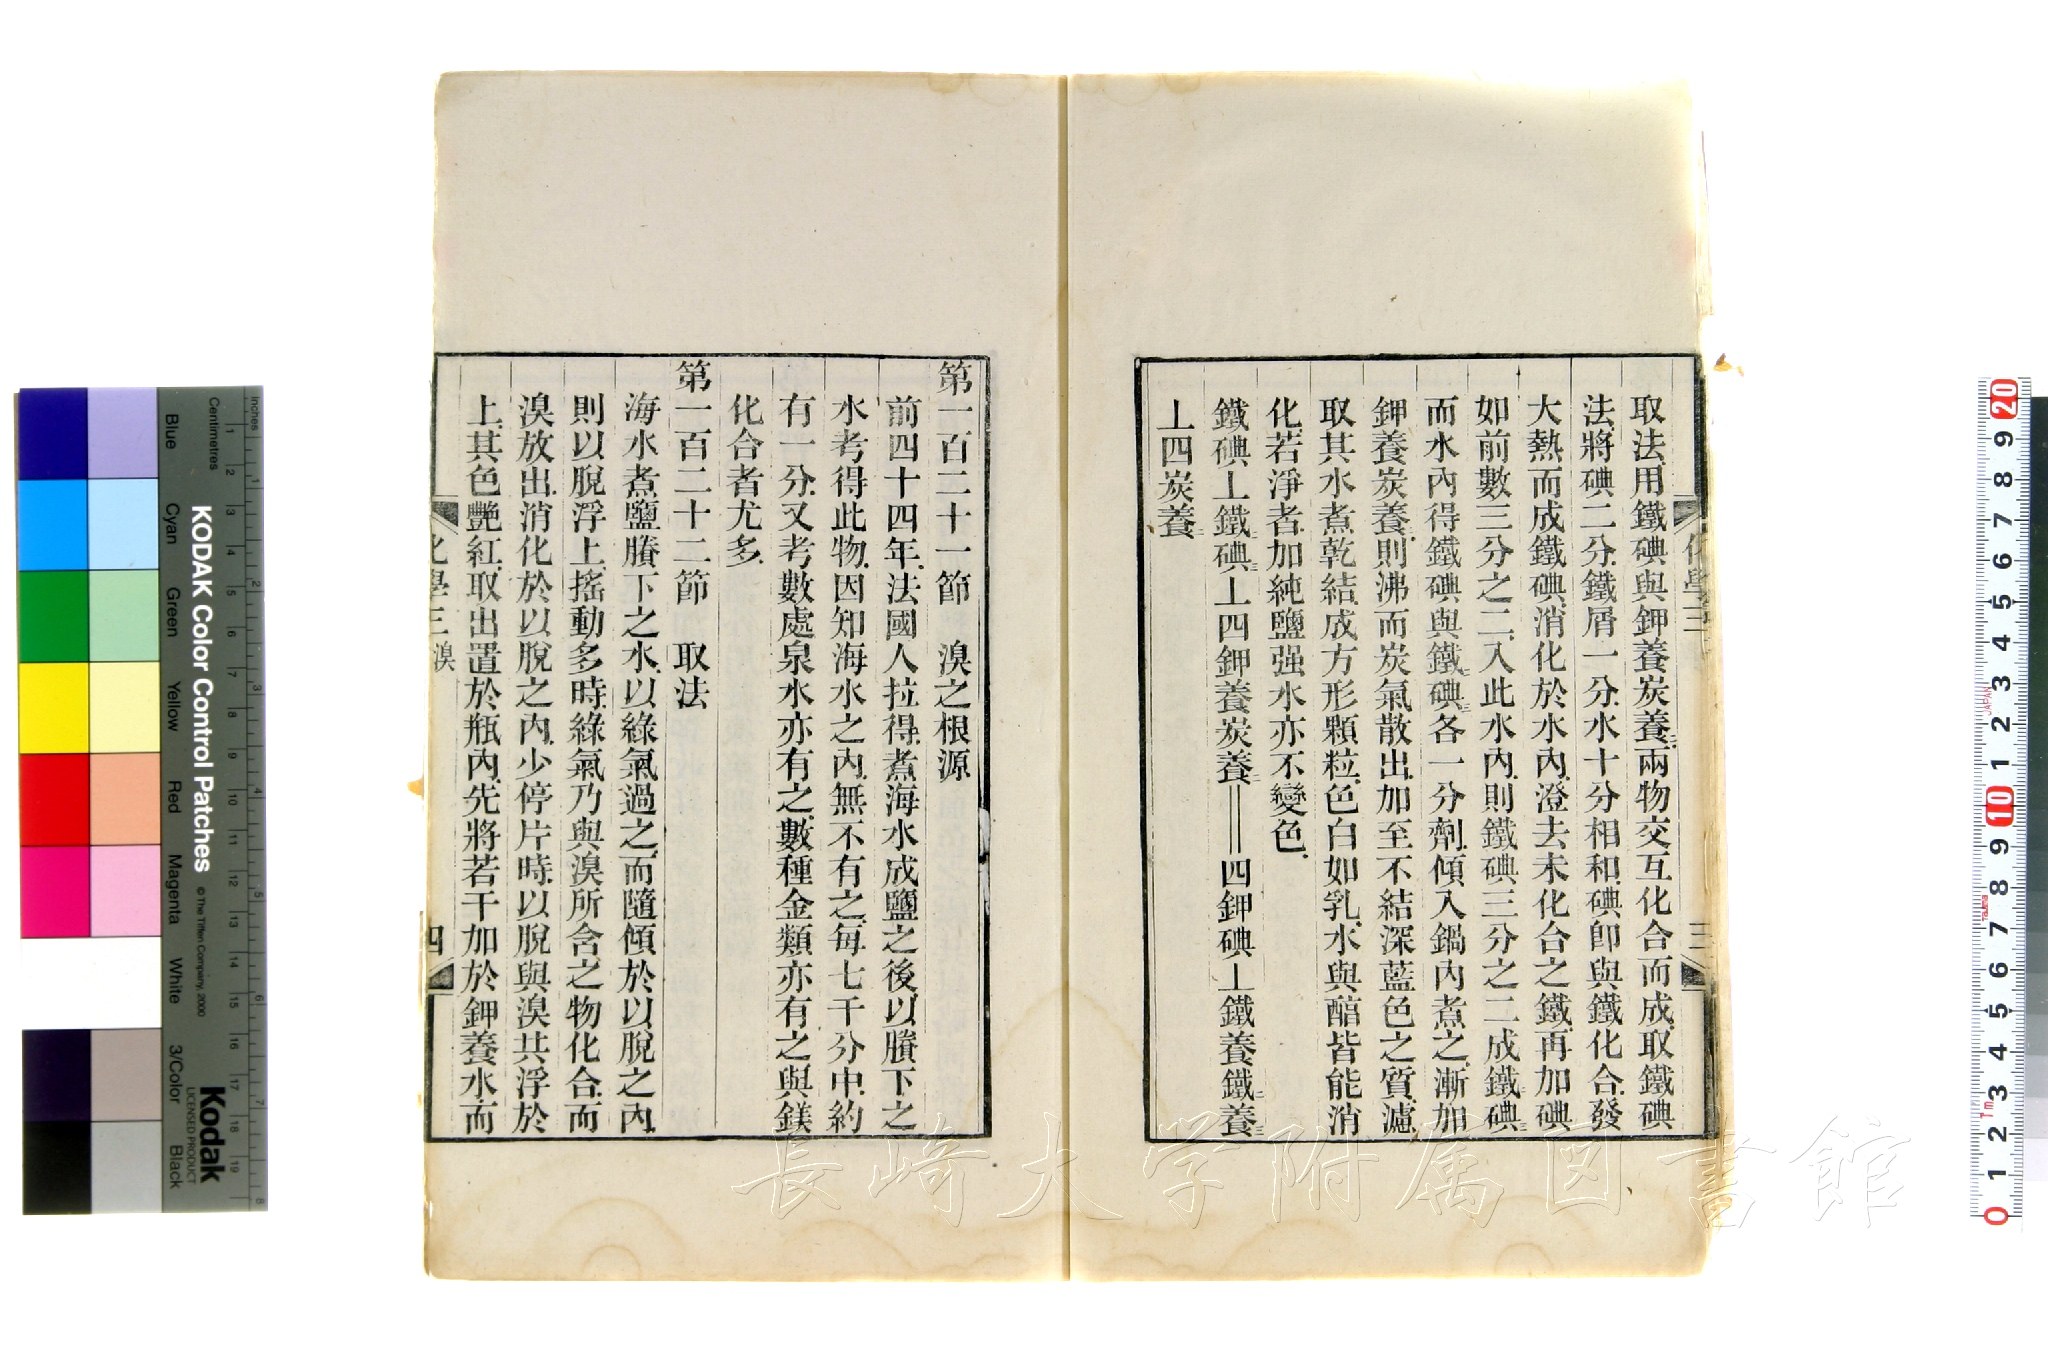 取法用鐵碘與鉀養炭養二兩物交互化合而成取鐵碘
法將碘二分鐵屑一分水十分相和碘卽與鐵化合發
大熱而成鐵碘消化於水內澄去未化合之鐵再加碘
如前數三分之二入此水內則鐵碘三分之二成鐵碘三
而水內得鐵碘與鐵碘三各一分劑傾入鍋內煮之漸加
鉀養炭養二則沸而炭氣散出加至不結深藍色之質濾
取其水煮乾結成方形顆粒色白如乳水與醕皆能消
化若淨者加純鹽强水亦不變色
鐵碘⊥鐵二碘三⊥四鉀養炭養二==四鉀碘⊥鐵養鐵二養三
⊥四炭養二
化學三
三
第一百二十一節 溴之根源
前四十四年法國人拉得煮海水成鹽之後以賸下之
水考得此物因知海水之內無不有之每七千分中約
有一分又考數處泉水亦有之數種金類亦有之與鎂
化合者尤多
第一百二十二節 取法
海水煮鹽賸下之水以綠氣過之而隨傾於以脫之內
則以脫浮上搖動多時綠氣乃與溴所含之物化合而
溴放出消化於以脫之內少停片時以脫與溴共浮於
上其色艷紅取出置於瓶內先將若干加於鉀養水而
化學三 溴
四
長崎大学附属図書館
KODAK Color Control Patches
© The Tiffen Company, 2000
Kodak
LICENSED PRODUCT
inches
Centimetres
Blue
Cyan
Green
Yellow
Red
Magenta
White
3/Color
Black
1 2 3 4 5 6 7 8 9 10 11 12 13 14 15 16 17 18 19
20 9 8 7 6 5 4 3 2 1 10 9 8 7 6 5 4 3 2 1 0
JAPAN